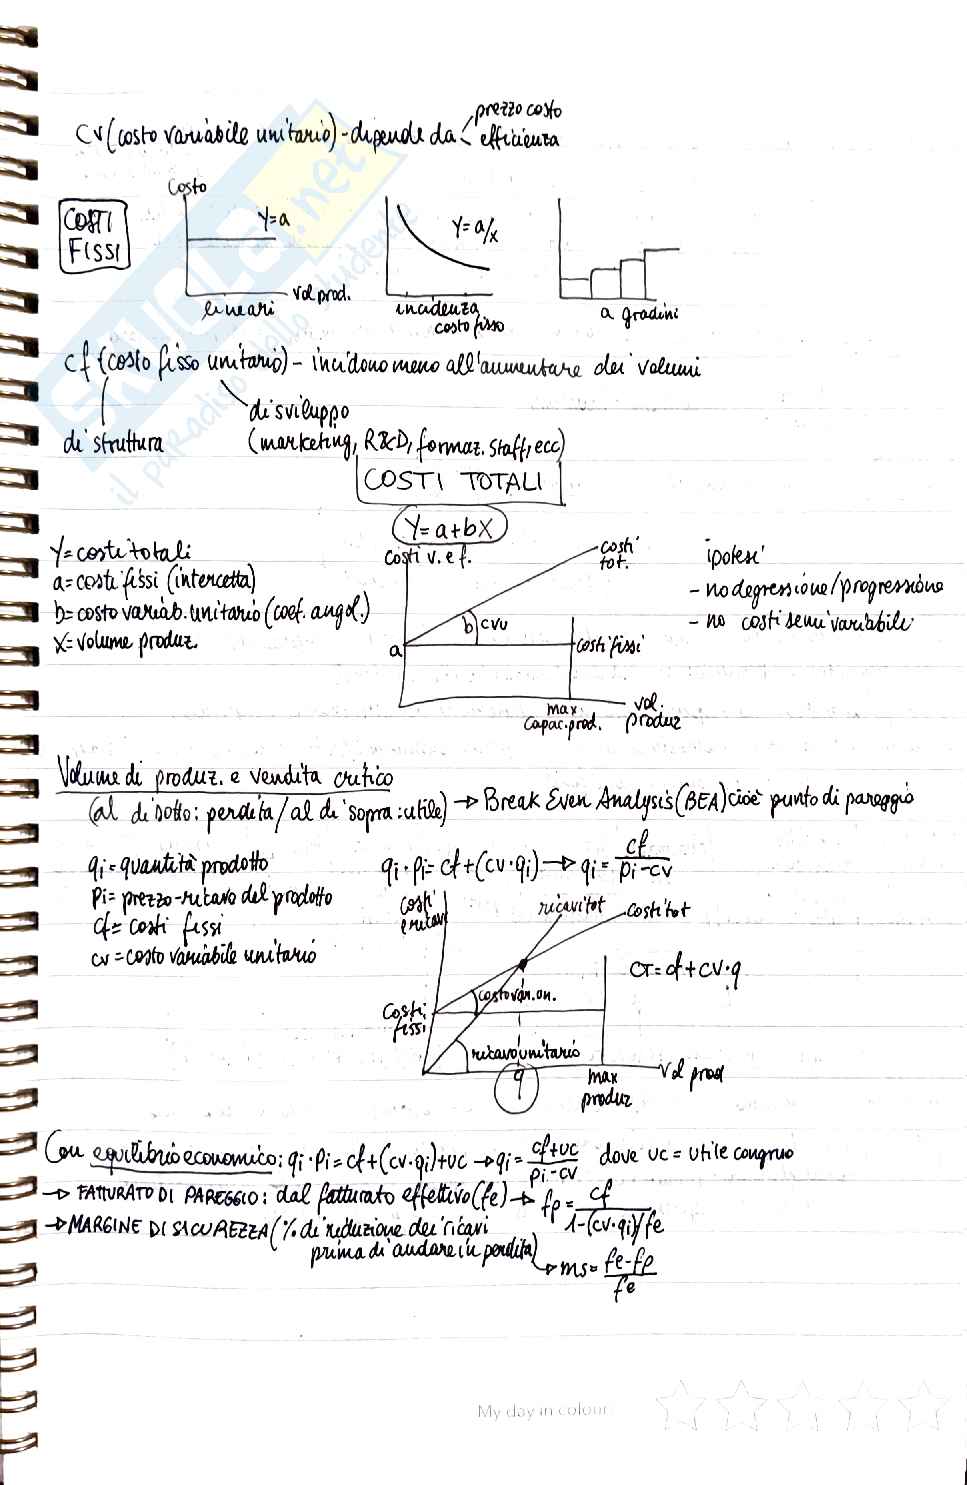 cv (costo variabile unitario) - dipende da < prezzo costo
efficienza
COSTI
FISSI
Costo
Y=a
vol prod.
lineari
Y=a/x
incidenza
costo fisso
a gradini
cf (costo fisso unitario) - incidono meno all'aumentare dei volumi
di struttura
di sviluppo
(marketing, R&D, formaz. staff, ecc)
COSTI TOTALI
Y=a+bX
Y=costi totali
a=costi fissi (intercetta)
b=costo variab. unitario (coef. angol.)
X=volume produz.
Costi v. e f.
costi
tot.
b
cvu
a
costi fissi
max
capac. prod.
vol.
produz
ipotesi
- no degressione/progressione
- no costi semivariabili
Volume di produz. e vendita critico
(al di sotto: perdita / al di sopra: utile) → Break Even Analysis (BEA) cioè punto di pareggio
qi = quantità prodotto
pi = prezzo-ricavo del prodotto
cf = costi fissi
cv = costo variabile unitario
qi·pi = cf+(cv·qi) → qi = cf/pi-cv
costi
e ricavi
ricavi tot
costi tot
CT = cf+cv·q
costo var. un.
Costi
fissi
ricavo unitario
q
max
produz
vol prod
Con equilibrio economico: qi·pi = cf+(cv·qi)+uc → qi = cf+uc/pi-cv dove uc = utile congruo
→ FATTURATO DI PAREGGIO: dal fatturato effettivo (fe) → fp = cf/1-(cv·qi)/fe
→ MARGINE DI SICUREZZA (% di riduzione dei ricavi
prima di andare in perdita) → ms = fe-fp/fe
My day in colour
SKUOLA.net
il paradiso dello studente